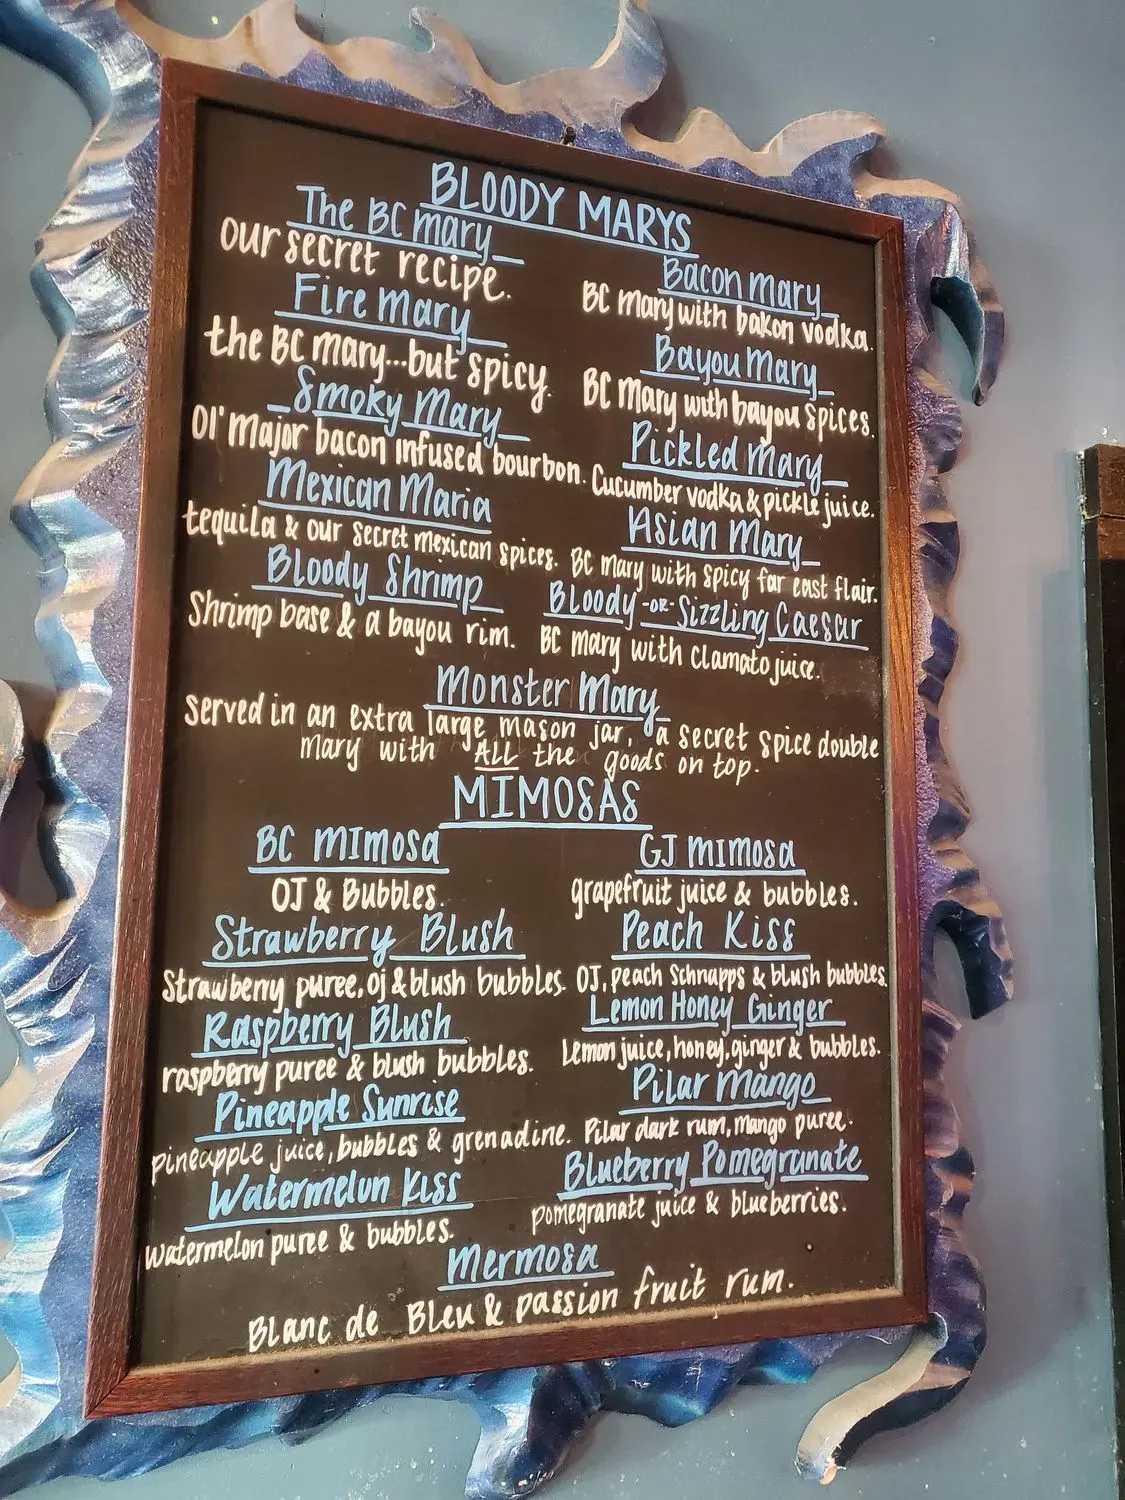 BLOODY MARYS
The BC mary
our secret recipe.
Fire Mary
the BC mary...but spicy.
Smoky Mary
Ol' Major bacon infused bourbon.
Mexican Maria
tequila & our secret mexican spices.
Bloody Shrimp
Shrimp base & a bayou rim.
Bacon Mary
BC mary with bakon vodka.
Bayou Mary
BC Mary with bayou spices.
Pickled Mary
Cucumber vodka & pickle juice.
Asian Mary
BC mary with spicy far east flair.
Bloody -OR- Sizzling Caesar
BC mary with clamato juice.
Monster Mary
served in an extra large mason jar, a secret spice double
mary with ALL the goods on top.
MIMOSAS
BC MImosa
OJ & Bubbles.
Strawberry Blush
Strawberry puree, oj & blush bubbles.
Raspberry Blush
raspberry puree & blush bubbles.
Pineapple Sunrise
pineapple juice, bubbles & grenadine.
Watermelon Kiss
watermelon puree & bubbles.
GJ MImosa
grapefruit juice & bubbles.
Peach Kiss
OJ, peach schnapps & blush bubbles.
Lemon Honey Ginger
Lemon juice, honey, ginger & bubbles.
Pilar Mango
Pilar dark rum, mango puree.
Blueberry Pomegranate
pomegranate juice & blueberries.
Mermosa
Blanc de Bleu & passion fruit rum.